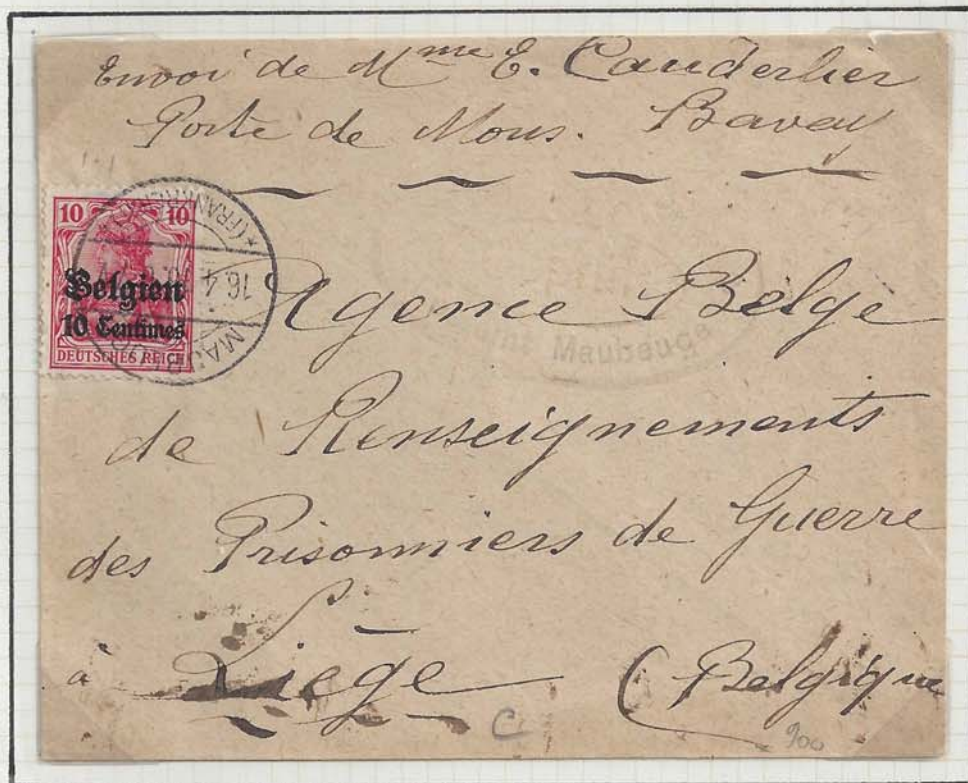 Envoi de Mme E. Cauderlier
Porte de Mons. Bavay
10 10
Belgien
10 Centimes
DEUTSCHES REICH
(FRANKREICH)
16.4
Maubeuge
Agence Belge
de Renseignements
des Prisonniers de Guerre
à Liège (Belgique
C
900